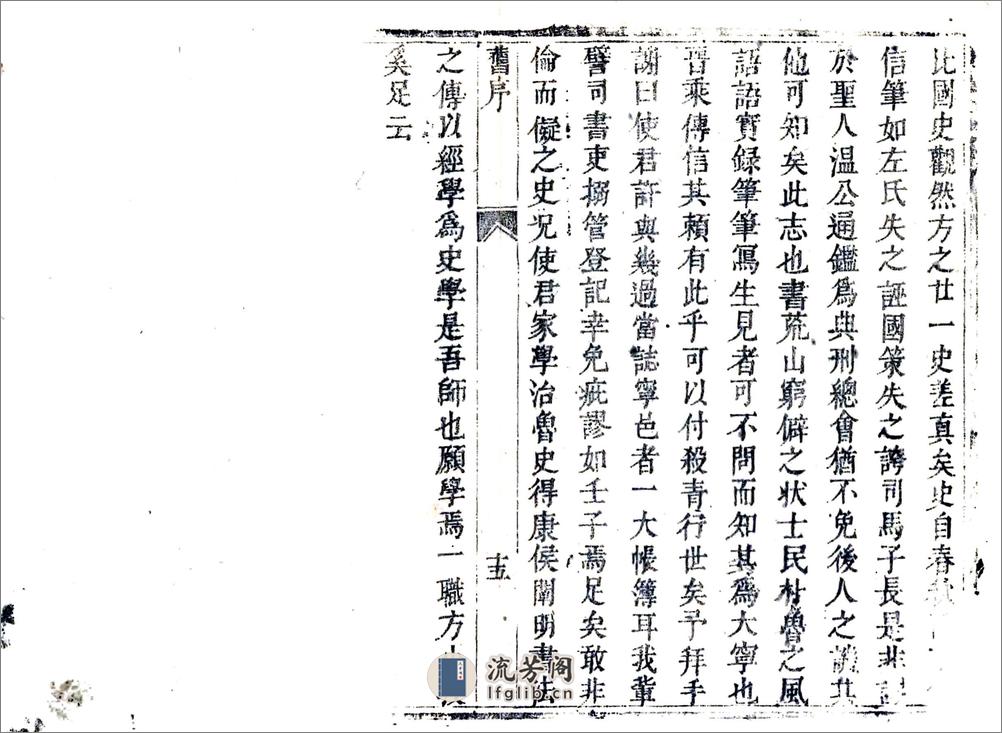 比國史觀然方之廿一史差真矣史自春秋
信筆如左氏失之誣國策失之誇司馬子長是非
於聖人温公通鑑爲典刑總會猶不免後人之其
他可知矣此志也書荒山窮僻之状士民朴魯之風
語語實録筆筆寫生見者可不問而知其爲大寧也
晉乘傳信其賴有此乎可以付殺青行世矣予拜手
謝曰使君許與幾過當誌寧邑者一大帳簿耳我輩
譬司書吏搦管登記幸免疵謬如壬子焉足矣敢非
倫而儗之史况使君家學治魯史得康侯闡明書法
舊序
十五
之傳以經學爲史學是吾師也願學焉一職方
奚足云
流芳阁
lfglib.cn